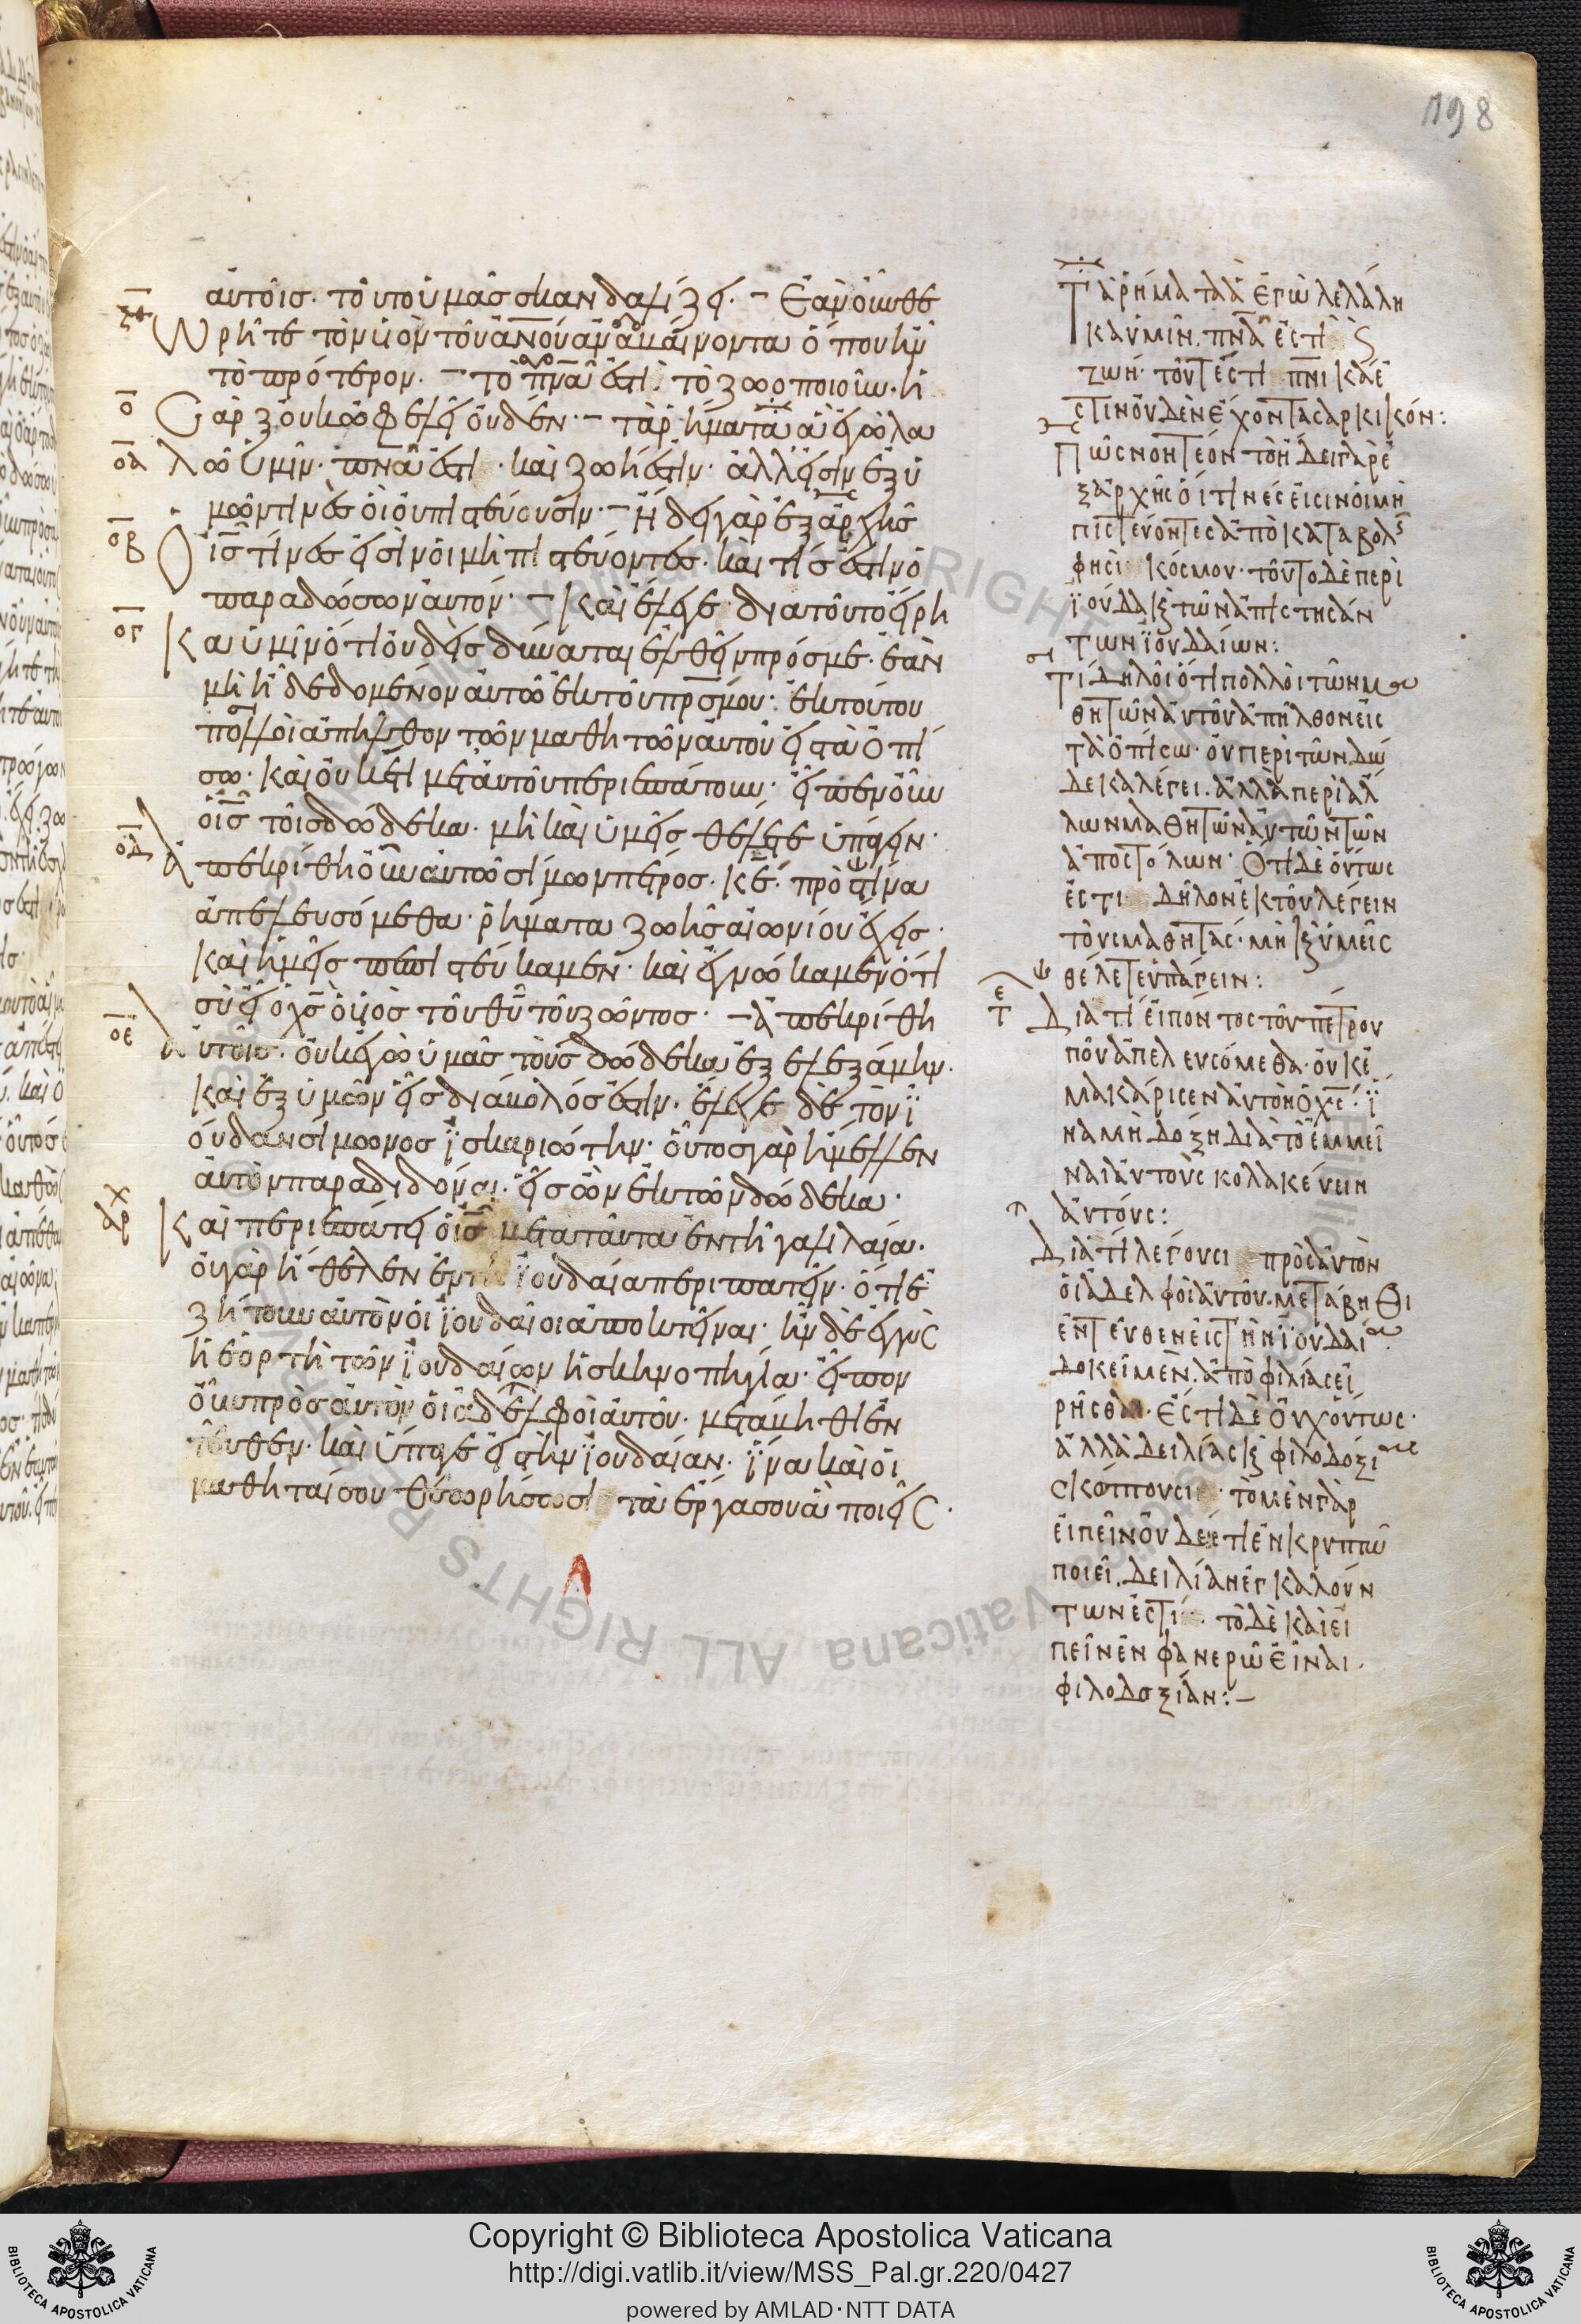 198
αὐτοῖσ· τοῦτο ὑμᾶσ σκανδαλίζει· – Ἐὰν οὖν θε
ξθ Ωρῆτε τὸν υἱὸν τοῦ ἀνου ἀναβαίνοντα ὅπου ἦν
τὸ πρότερον· – τὸ πνα ἐστι· τὸ ζωοποιοῦν· ἡ
ο Σὰρξ οὐκ ὠφελεῖ οὐδέν· – τὰ ῥήματα ἃ ἐγὼ λα
οα λῶ ὑμῖν· πνα ἐστι· καὶ ζωή ἐστιν· ἀλλ' εἰσὶν ἐξ ὑ
μῶν τινὲσ οἳ οὐ πιστεύουσιν· – ἤδει γὰρ ἐξ ἀρχῆσ
οβ Ὁ ισ τίνεσ εἰσὶν οἱ μὴ πιστεύοντεσ· καὶ τίσ ἐστιν ὁ
παραδώσων αὐτόν· – Καὶ ἔλεγε· διὰ τοῦτο εἴρη
ογ Κα ὑμῖν ὅτι οὐδεὶσ δύναται ἐλθεῖν πρόσ με· ἐὰν
μὴ ἦ δεδομένον αὐτῶ ἐκ τοῦ πρσ μου· ἐκ τούτου
πολλοὶ ἀπῆλθον τῶν μαθητῶν αὐτοῦ εἰσ τὰ ὀπί
σω· καὶ οὐκέτι μετ αὐτοῦ περιεπάτουν· εἶπεν οὖν
ὁ ισ τοῖσ δώδεκα· μὴ καὶ ὑμεῖσ θέλετε ὑπάγειν·
οδ ἀπεκρίθη οὖν αὐτῶ σίμων πέτροσ· κε· πρὸσ τίνα
ἀπελευσόμεθα· ῥήματα ζωῆσ αἰωνίου ἔχεισ·
καὶ ἡμεῖσ πεπιστεύκαμεν· καὶ ἐγνώκαμεν ὅτι
σὺ εἶ ὁ χσ ὁ υἱὸσ τοῦ θυ τοῦ ζῶντοσ· – ἀπεκρίθη
οε αὐτοῖσ· οὐκ ἐγὼ ὑμᾶσ τοὺσ δώδεκα ἐξελεξάμην·
καὶ ἐξ ὑμῶν εἷσ διάβολόσ ἐστιν· ἔλεγε δὲ τὸν ἰ
ούδαν σίμωνοσ ἰσκαριώτην· οὗτοσ γὰρ ἤμελλεν
αὐτὸν παραδιδόναι· εἷσ ὢν ἐκ τῶν δώδεκα·
ἀρχ Καὶ περιεπάτει ὁ ισ μετὰ ταῦτα ἐν τῆ γαλιλαία·
οὐ γὰρ ἤθελεν ἐν τῆ ἰουδαία περιπατεῖν· ὅτι ἐ
ζήτουν αὐτὸν οἱ ἰουδαῖοι ἀποκτεῖναι· ἦν δὲ ἐγγὺς
ἡ ἑορτὴ τῶν ἰουδαίων ἡ σκηνοπηγία· εἶπον
οὖν πρὸσ αὐτὸν οἱ ἀδελφοὶ αὐτοῦ· μετάβηθι ἐν
τεῦθεν· καὶ ὕπαγε εἰσ τὴν ἰουδαίαν· ἵνα καὶ οἱ
μαθηταί σου θεωρήσωσι τὰ ἔργα σου ἃ ποιεῖς·
Τὰ ῥήματα ἃ ἐγὼ λελάλη
κα ὑμῖν. πνα ἐστὶ ϛ
ζωή· τοῦτ ἔστι πνικα ἐ
στιν οὐδὲν ἔχοντα σαρκικόν:
Πῶς νοητέον τὸ ἤδει γὰρ ἐ
ξ ἀρχῆς ὁ ις τίνες εἰσὶν οἱ μὴ
πιστεύοντες ἀπὸ καταβολῆς
φησὶ κόσμου· τοῦτο δὲ περὶ
ἰούδα ϗ τῶν ἀπιστησάν
των ἰουδαίων:
Τί δηλοῖ ὅτι πολλοὶ τῶν μα
θητῶν αὐτοῦ ἀπῆλθον εἰς
τὰ ὀπίσω· οὐ περὶ τῶν δώ
δεκα λέγει. ἀλλὰ περὶ ἄλ
λων μαθητῶν αὐτῶν τῶν
ἀποστόλων· Ὅτι δὲ ὄντως
ἐστι δῆλον ἐκ τοῦ λέγειν
τοὺς μαθητάς· μὴ ϗ ὑμεῖς
θέλετε ὑπάγειν:
Διατί εἰπόντος τοῦ πέτρου
ποῦ ἀπελευσόμεθα· οὐκ ἐ
μακάρισεν αὐτὸν ὁ χς· ἵ
να μὴ δόξη διὰ τὸ ἐμμεῖ
ναι αὐτοὺς κολακεύειν
αὐτούς:
Διατί λέγουσι πρὸς αὐτὸν
οἱ ἀδελφοὶ αὐτοῦ. μετάβηθι
ἐντεῦθεν εἰς τὴν ἰουδαία·
δοκεῖ μὲν. ἀπὸ φιλίας εἰ
ρῆσθαι· ἔστι δὲ οὐχ οὕτως·
ἀλλὰ δειλίας ϗ φιλοδοξίας
σκώπτουσι· τὸ μὲν γὰρ
εἰπεῖν οὐδεὶς τι ἐν κρυπτῶ
ποιεῖ. δειλίαν ἐγκαλούν
των ἐστί· τὸ δὲ καὶ εἰ
πεῖν ἐν φανερῶ εἶναι.
φιλοδοξίαν:–
Copyright © Biblioteca Apostolica Vaticana
http://digi.vatlib.it/view/MSS_Pal.gr.220/0427
powered by AMLAD·NTT DATA